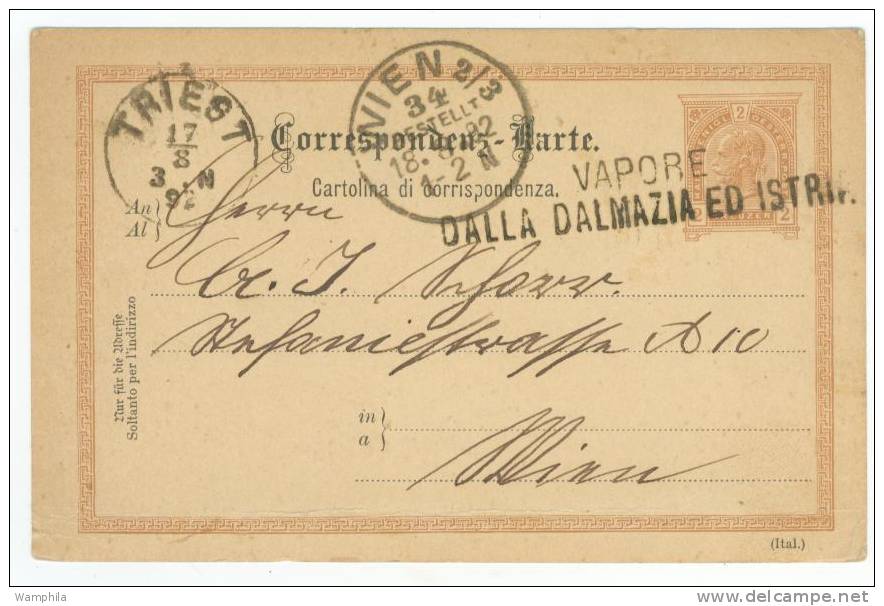 TRIEST
17
8
3 N
92
WIEN 2/3
34
BESTELLT
18. 8. 92
1-2 N
Correspondenz-Karte.
Cartolina di corrispondenza.
2
VAPORE
DALLA DALMAZIA ED ISTRIA
2
An
Al
Herrn
J. Schorr.
Stefaniestrasse A 10
in
a
Wien
Nur für die Adresse
Soltanto per l'indirizzo
(Ital.)
Wamphila
delcampe.net